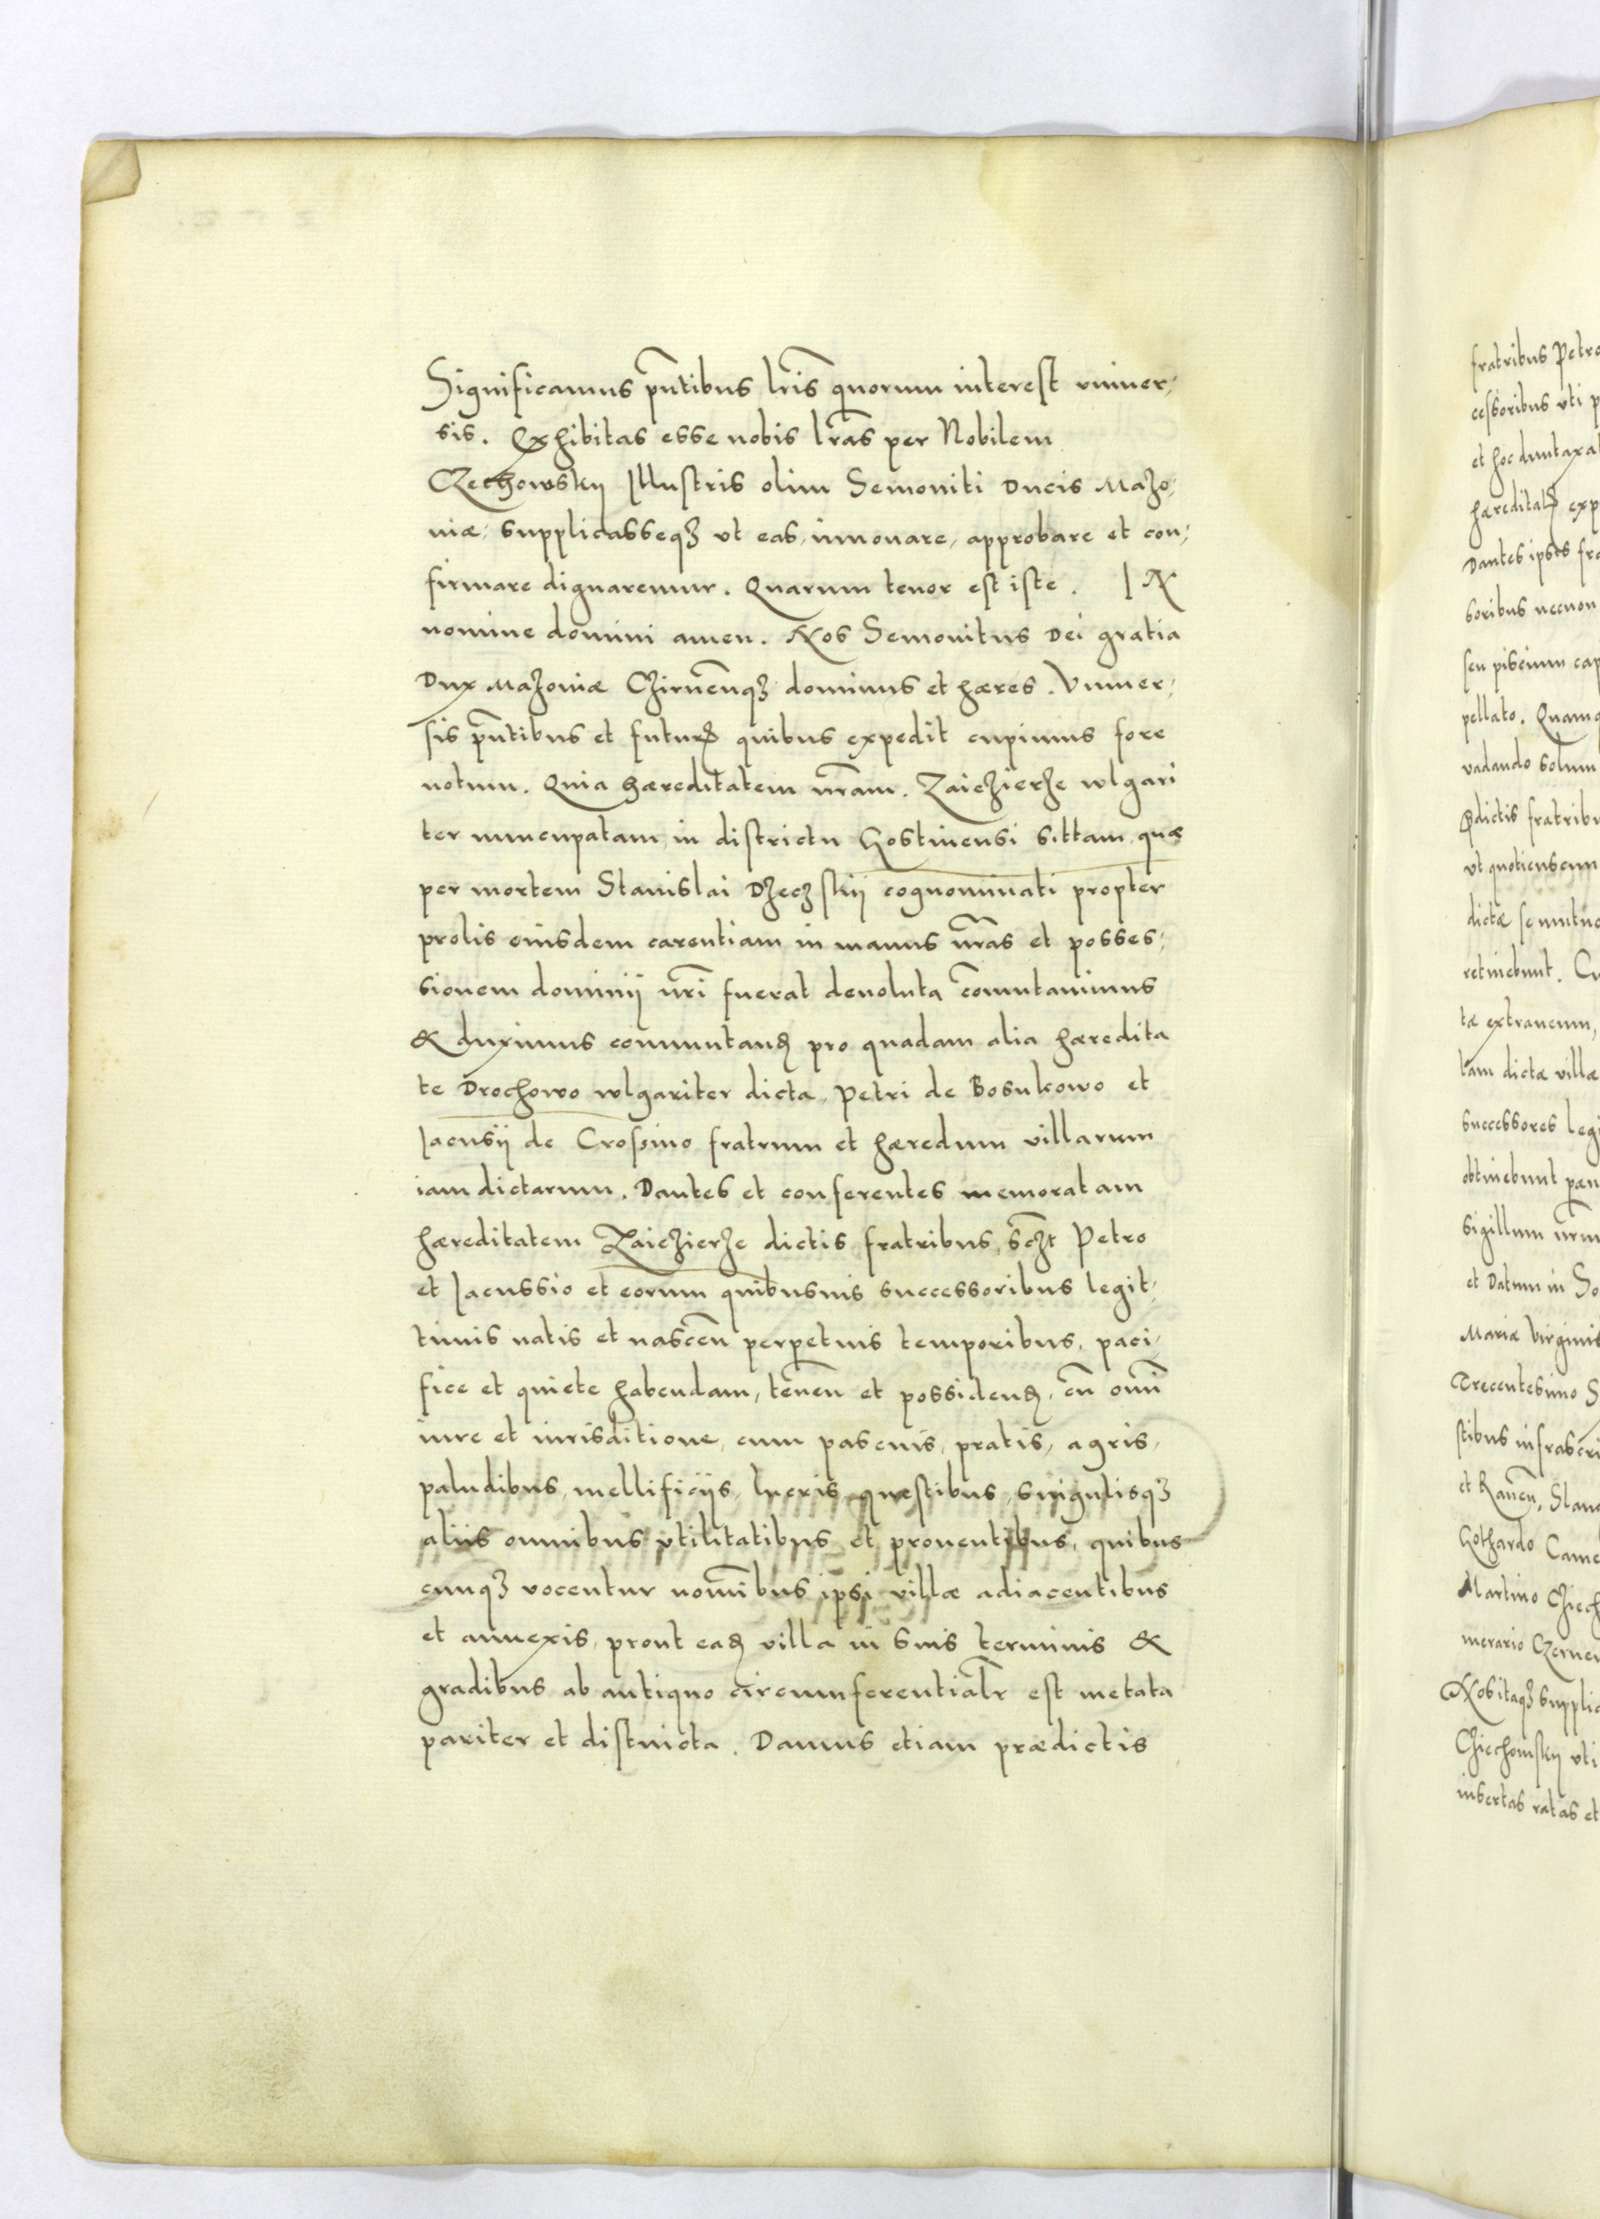 Significamus p̃ntibus lr̃is quorum interest vniuer,
sis. Exhibitas esse nobis lr̃as per Nobilem
Czechowskij Illustris olim Semoniti Ducis Mazo,
niæ, supplicasseqȝ vt eas, innouare, approbare et con,
firmare dignaremur. Quarum tenor est iste. IN
nomine domini amen. Nos Semonitus Dei gratia
Dux Mazoniæ Chirnen̄qȝ dominus et hæres. Vniuer,
sis p̃ntibus et futurꝭ quibus expedit cupimus fore
notum. Quia hæreditatem nr̃am. Zaiezierze wlgari
ter nuncupatam in districtu Gostinensi sittam quæ
per mortem Stanislai Dzeczskij cognominati propter
prolis eiusdem carentiam in manus nr̃as et posses,
sionem dominij nr̃i fuerat deuoluta com̄utauimus
& duximus commutanꝺ pro quadam alia hæredita
te Drochowo wlgariter dicta, Petri de Bosukowo et
Iacusij de Crossino fratrum et hæredum villarum
iam dictarum. Dantes et conferentes memoratam
hæreditatem Zaiezierze dictis fratribus, sczt̃ Petro
et Iacussio et eorum quibusuis successoribus legit,
timis natis et nascen̄ perpetuis temporibus, paci,
fice et quiete habendam, tenen̄ et possidenꝺ, cũ omĩ
iure et iurisditione, cum pascuis, pratis, agris,
paludibus, mellificijs, lucris, quæstibus, singulisqȝ
aliis omnibus vtilitatibus et prouentibus, quibus
cunqȝ vocentur nomĩbus ipsi villæ adiacentibus
et annexis, prout eaꝺ villa in suis terminis &
gradibus ab antiquo circumferentialr̃ est metata
pariter et distincta. Damus etiam prædictis
fratribus Petro
cessoribus vti p
et hoc duntaxat
hæreditatꝭ exp
Dantes ipsis fra
soribus necnon
seu piscium cap
pellato. Quamq
vadando solum
p̃dictis fratribu
vt quotienscun
dictæ se mutuo
retinebunt. Cu
tæ extraneum,
tam dictæ villæ
successores legi
obtinebunt pæn
sigillum nr̃um
et Datum in So
Mariæ Virginis
Trecentesimo S
stibus infrascri
et Rauen̄, Stan
Gothardo Came
Martino Chiech
merario Czernen
Nos itaqȝ supplic
Chiechomskij vti
insertas ratas et